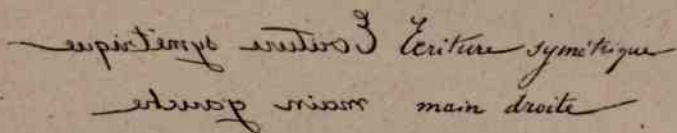 Ecriture symétrique Ecriture symétrique
main gauche main droite